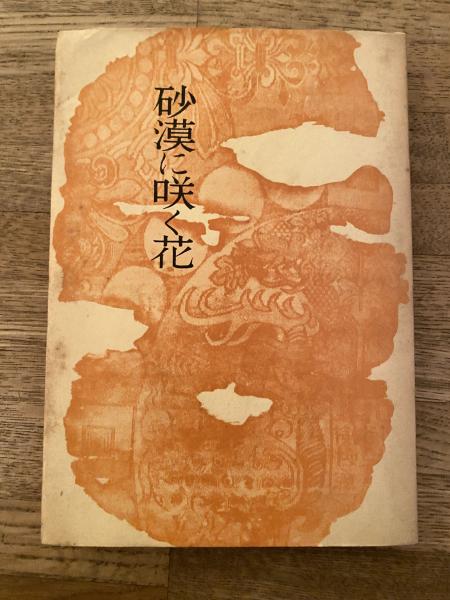 砂漠に咲く花